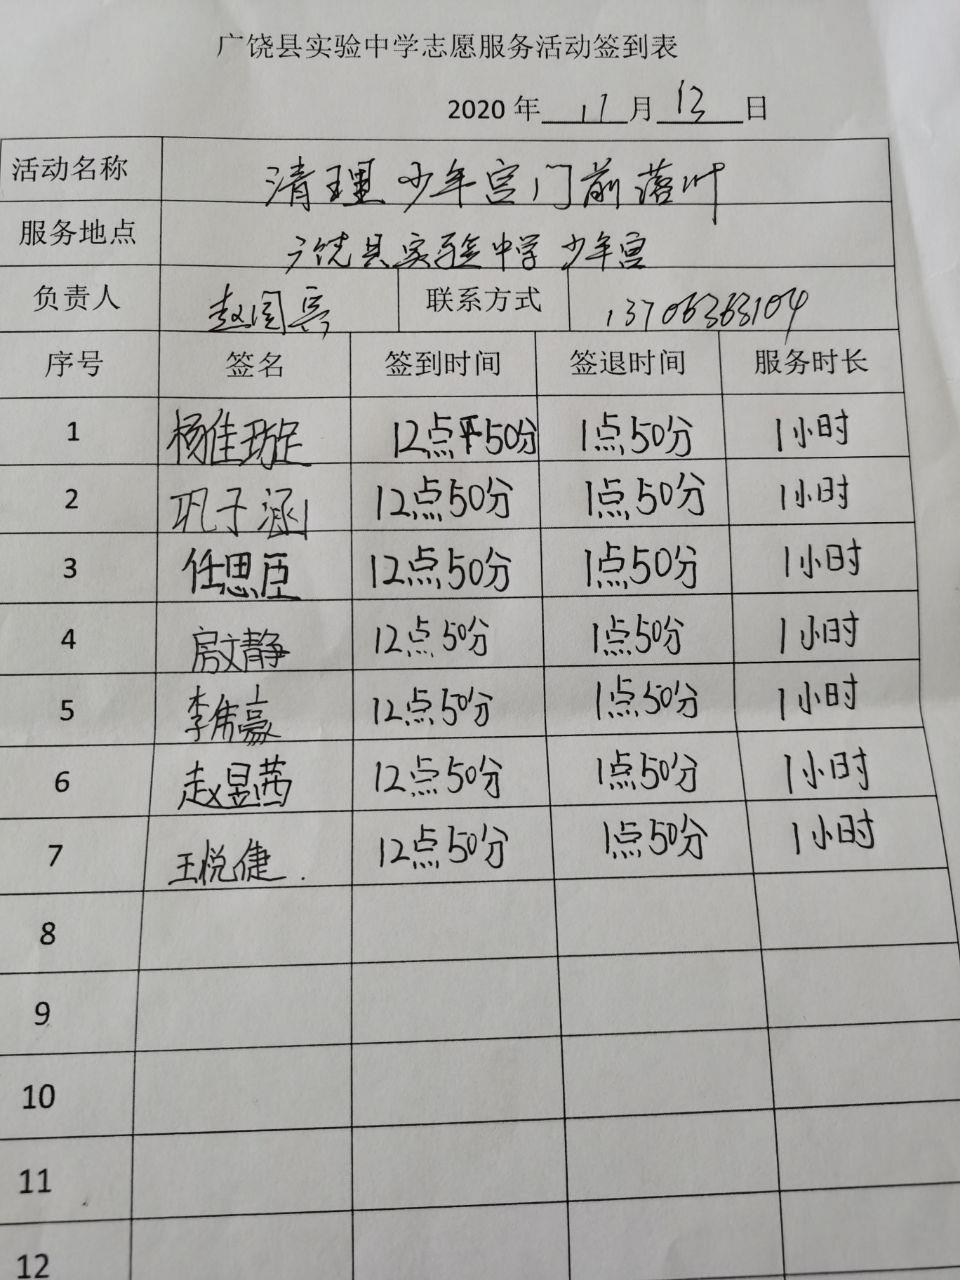 广饶县实验中学志愿服务活动签到表
2020 年 11 月 13 日
活动名称 清理少年宫门前落叶
服务地点 广饶县实验中学少年宫
负责人 赵国亮 联系方式 13706363104
序号 签名 签到时间 签退时间 服务时长
1 杨佳璇 12点50分 1点50分 1小时
2 巩子涵 12点50分 1点50分 1小时
3 任思臣 12点50分 1点50分 1小时
4 房文静 12点50分 1点50分 1小时
5 李帛豪 12点50分 1点50分 1小时
6 赵昱茜 12点50分 1点50分 1小时
7 王悦倢 12点50分 1点50分 1小时
8
9
10
11
12